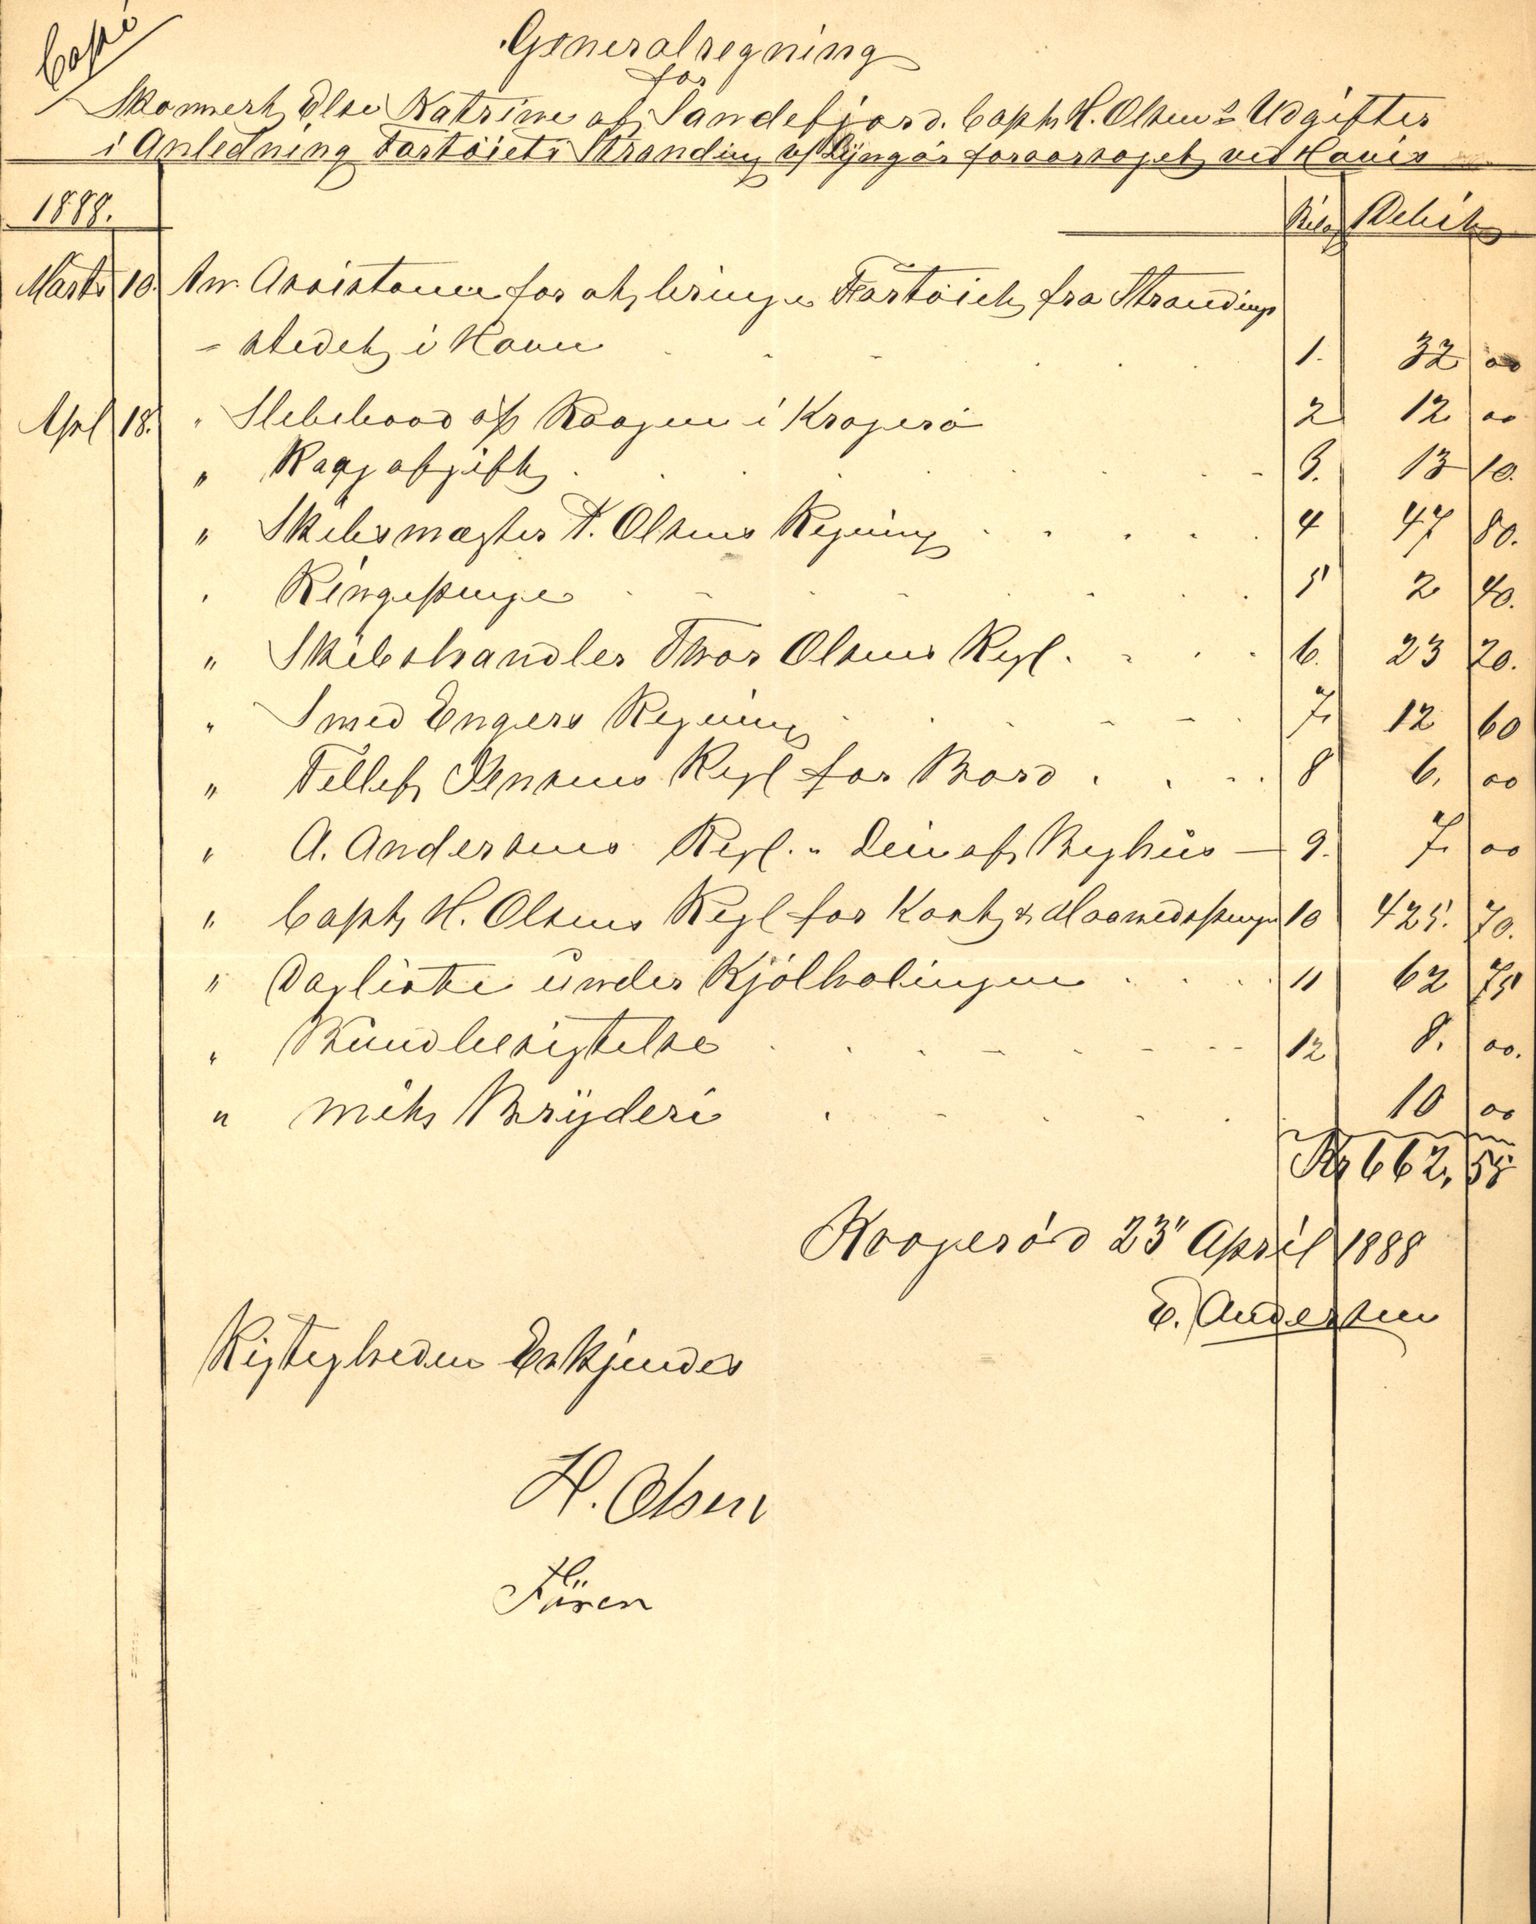 Copi
Generalregning
for
Skonnert Else Katrine af Sandefjord. Capt H. Olsens Udgifter
i Anledning Fartöiets Stranding af Lyngör foraarsaget ved Havis
1888. Bilag Debit
Marts 10. An Assistance for at bringe Fartöiet fra Strandings
- stedet i Havn 1. 32 00
Apl 18. " Slebebaad af Kragen i Kragerö 2 12 00
" Kajafgift 3. 13 10.
" Skibsmægler T. Olsens Regning 4 47 80.
" Ringepenge 5 2 40.
" Skibshandler Thor Olsens Regl. 6. 23 20.
" Smed Engers Regning 7. 12 60
" Tellef Jensens Regl for Bord 8 6. 00
" A. Andersens Regl. " Leie af Bryhus 9. 7. 00
" Capt H. Olsens Regl for Kost & Maanedspenge 10 425. 70.
" Dagliste under Kjölhalingen 11 62 75
" Bundbesigtelse 12 8. 00.
" mit Bryderi 10 00
Kr 662,55
Kragerö d 23" April 1888
E. Andersen
Rigtigheden Erkjendes
H. Olsen
Fören